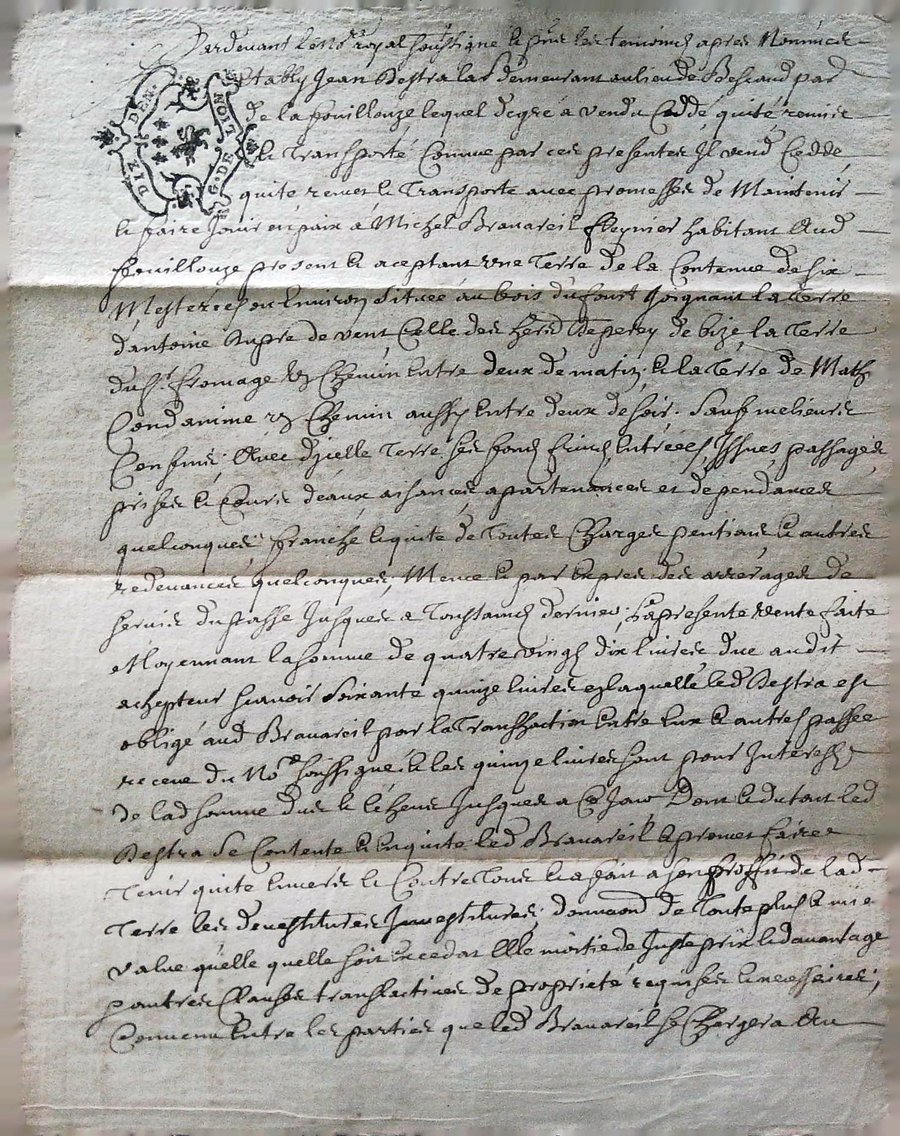 Pardevant le No.re royal soussigne & pnts les temoings apres Nommes
Estably Jean Destra lab. demeurant au lieu de Bescaud par
DIX DEN. G. DE NOIT
de la fouillouze lequel de gré a vendu Ceddé, quité remis
& Transporté Comme par ces presentes Il vend Cedde,
quite, remet & Transporte avec promesses de Maintenir
& faire Jouir en paix a Michel Bravareil habitant Aud
fouillouze present & aceptant une Terre de la Contenue de six
Mesterees ou Environ Située au bois du fourt Joignant la Terre
d'antoine Dupre de vent, Celle des her.s de bize, la Terre
du s.r fromage & Chemin entre deux de matin; & la Terre de Math
Condamine & Chemin aussy entre deux de soir. Sauf melieurs
Confins; Avec d'jcelle Terre ses fonds, entrées, Issues, passages,
prises & Cours deaux, aisances, apartenances et dependances
quelconques; franche & quite de Toutes Charges pentions & autres
redevances quelconques; Meme & par expres des arrerages de
servis du passe Jusques a Toussaincts dernier; La presente vente faite
Moyennant la somme de quatre vingt dix livres due audit
achepteur scavoir Soixante quinze livres en laquelle led Destra est
obligé aud Bravareil par la Transaction Entre Eux & autres passée
receue du No.re soussigné & les quinze livres sont pour Interests
de lad somme dus & échus Jusques a Ce Jour Dont & du tout led
Destra se Contente & En quitte led Bravareil & promet faire
Tenir quite envers & Contre Tous & a fait a son proffit de lad
Terre les devestitures Investitures; donnaõn de Toute plus & mie
value quelle quelle soit excedat Elle moitié de Juste prix & davantage
p autres Clauses translactives de propriété requises & necessaires;
Convenu Entre les parties que led Bravareil se Chargera Au